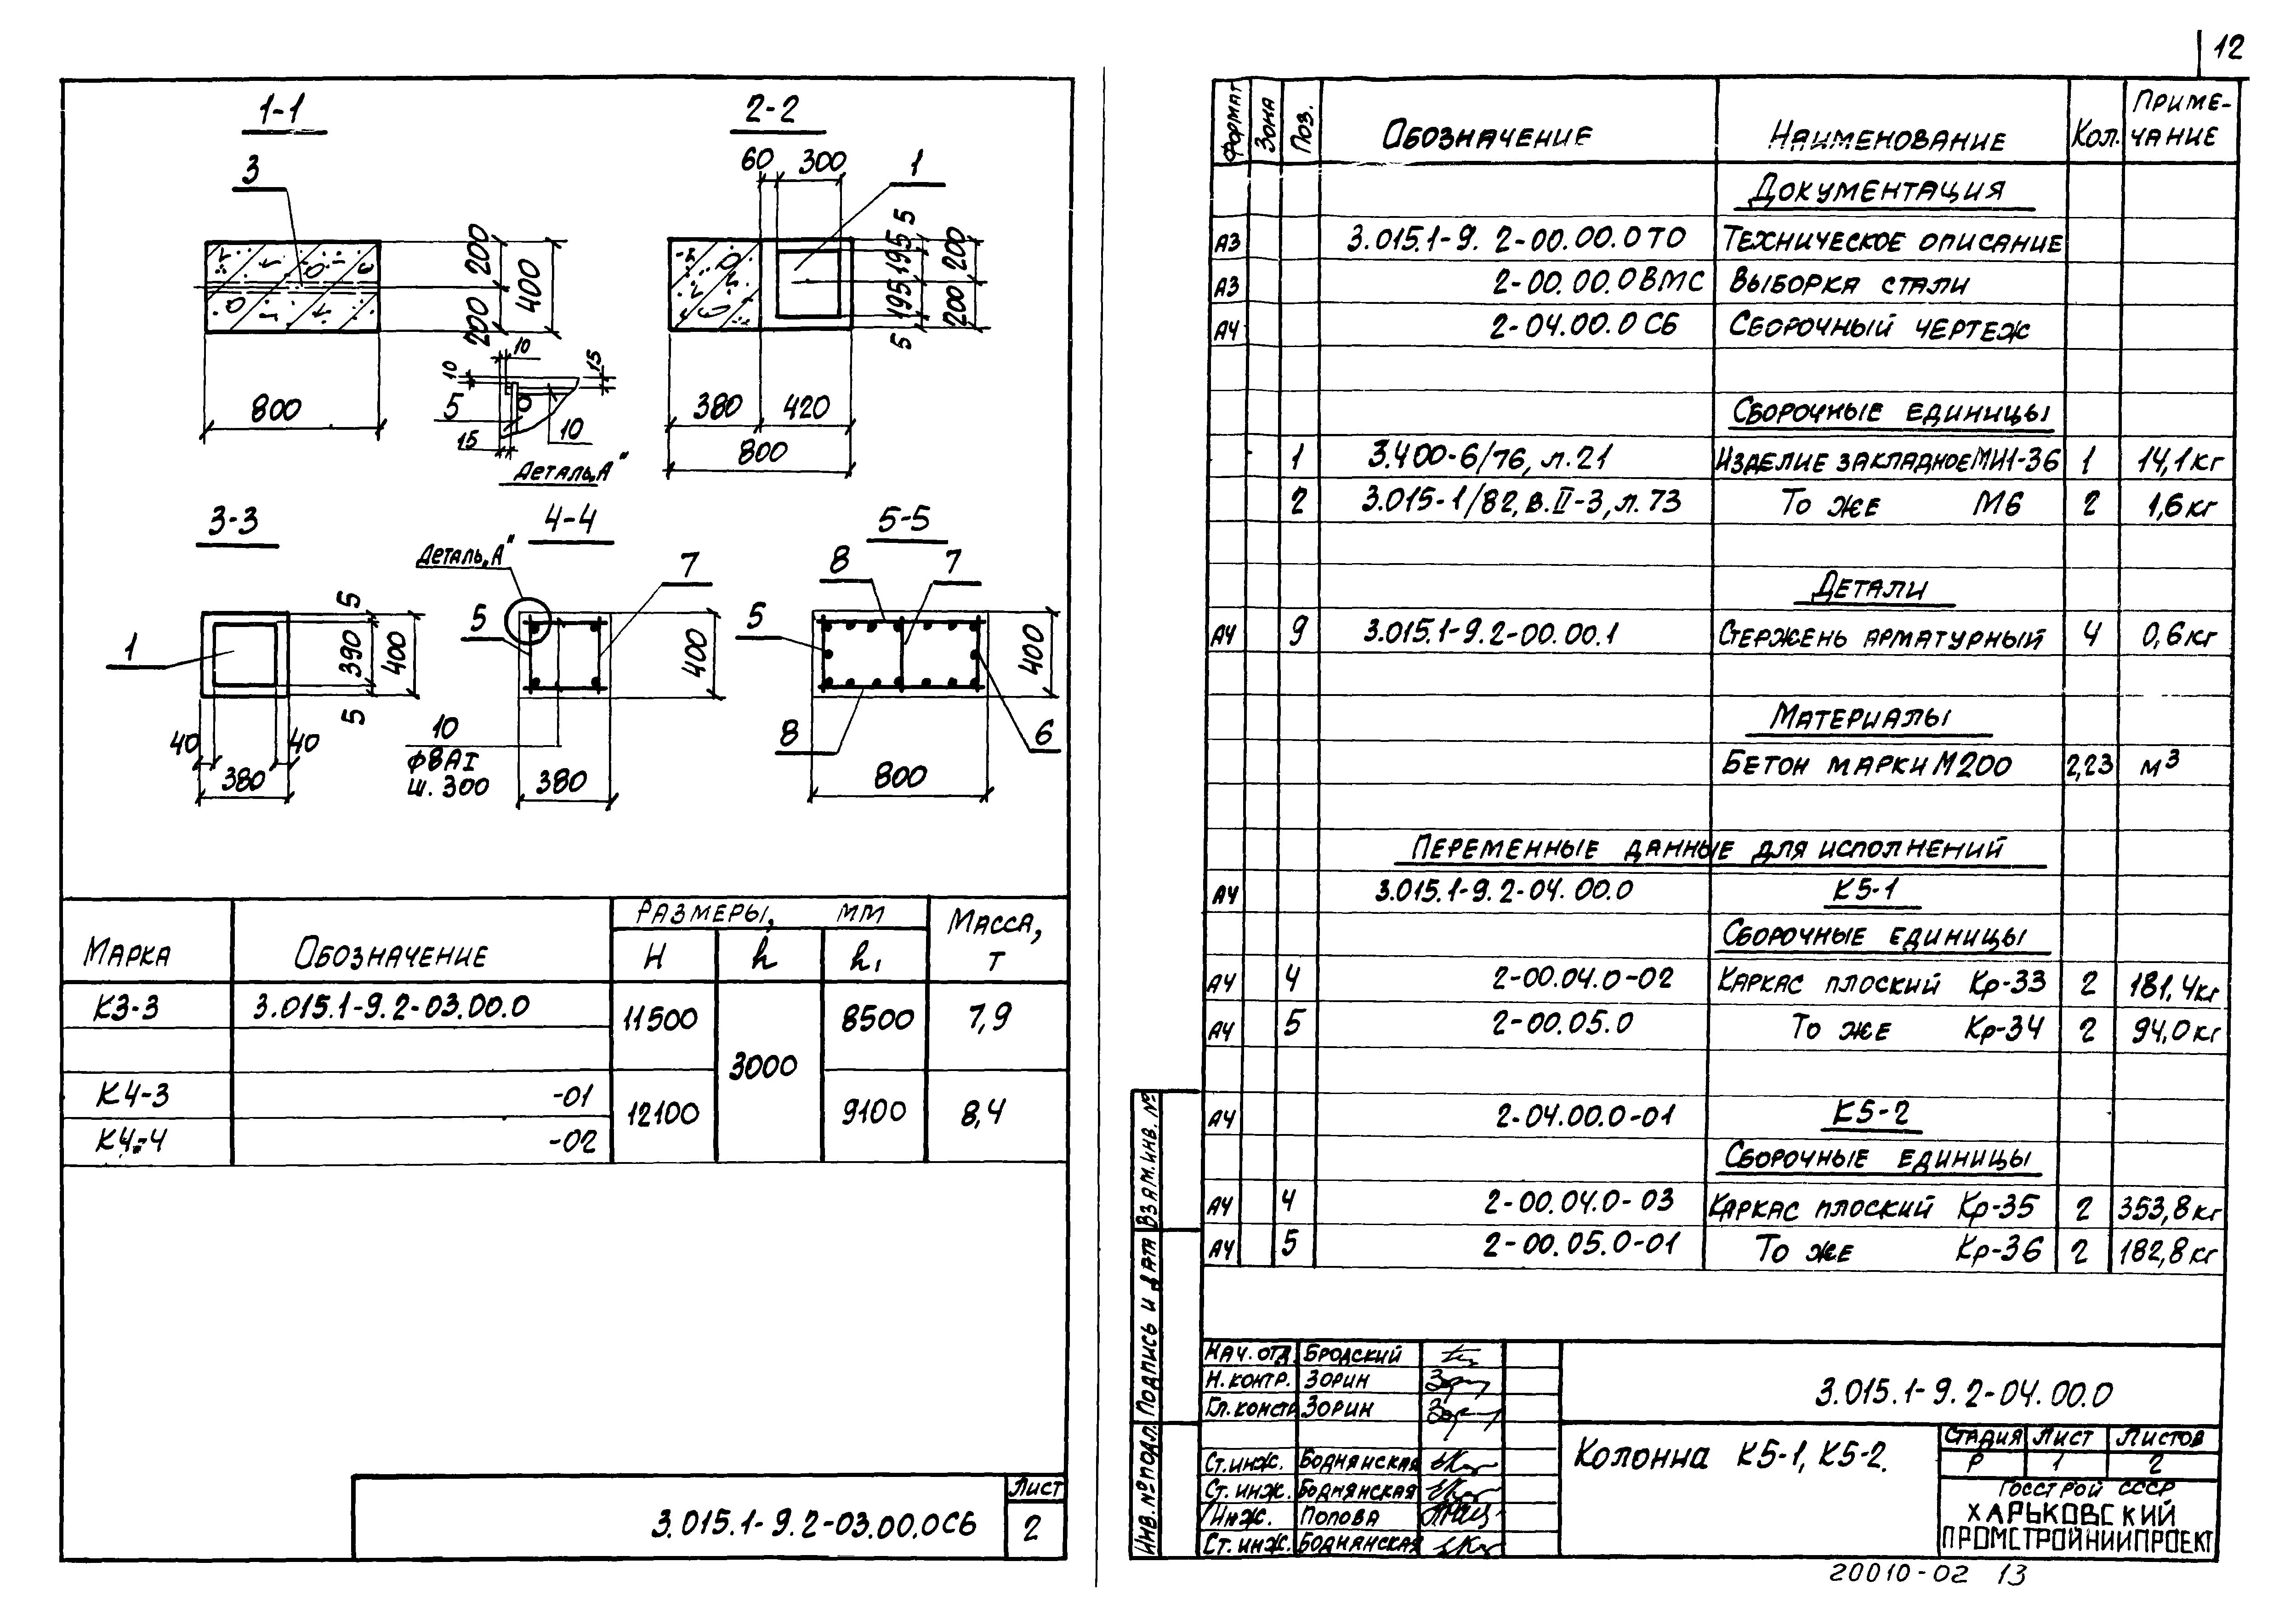 12
1-1
3
200
200
400
800
2-2
60
300
1
5
195
195
5
200
200
380
420
800
10
10
15
5
10
15
Деталь „А"
3-3
1
5
390
5
400
40
40
380
4-4
Деталь „А"
5
7
400
10
ϕ8АI
ш. 300
380
5-5
8
7
5
400
8
6
800
Марка
Обозначение
Размеры, мм
Масса, т
H
h
h₁
К3-3
3.015.1-9.2-03.00.0
11500
3000
8500
7,9
К4-3
-01
12100
9100
8,4
К4-4
-02
3.015.1-9.2-03.00.0СБ
Лист
2
Формат
Зона
Поз.
Обозначение
Наименование
Кол.
Приме-
чание
Документация
А3 3.015.1-9. 2-00.00.0ТО Техническое описание
А3 2-00.00.0ВМС Выборка стали
А4 2-04.00.0СБ Сборочный чертеж
Сборочные единицы
1 3.400-6/76, л.21 Изделие закладное МИ1-36 1 14,1кг
2 3.015-1/82, в.II-3, л.73 То же М6 2 1,6кг
Детали
А4 9 3.015.1-9.2-00.00.1 Стержень арматурный 4 0,6кг
Материалы
Бетон марки М200 2,23 м³
Переменные данные для исполнений
А4 3.015.1-9.2-04.00.0 К5-1
Сборочные единицы
А4 4 2-00.04.0-02 Каркас плоский Кр-33 2 181,4кг
А4 5 2-00.05.0 То же Кр-34 2 94,0кг
А4 2-04.00.0-01 К5-2
Сборочные единицы
А4 4 2-00.04.0-03 Каркас плоский Кр-35 2 353,8кг
А4 5 2-00.05.0-01 То же Кр-36 2 182,8кг
Взам.инв. №
Подпись и дата
Инв. № подл.
Нач. отд. Бродский
Н. контр. Зорин
Гл. констр Зорин
Ст. инж. Боднянская
Ст. инж. Боднянская
Инж. Попова
Ст. инж. Боднянская
3.015.1-9.2-04.00.0
Колонна К5-1, К5-2.
Стадия Лист Листов
Р 1 2
Госстрой СССР
Харьковский
Промстройниипроект
20010-02 13